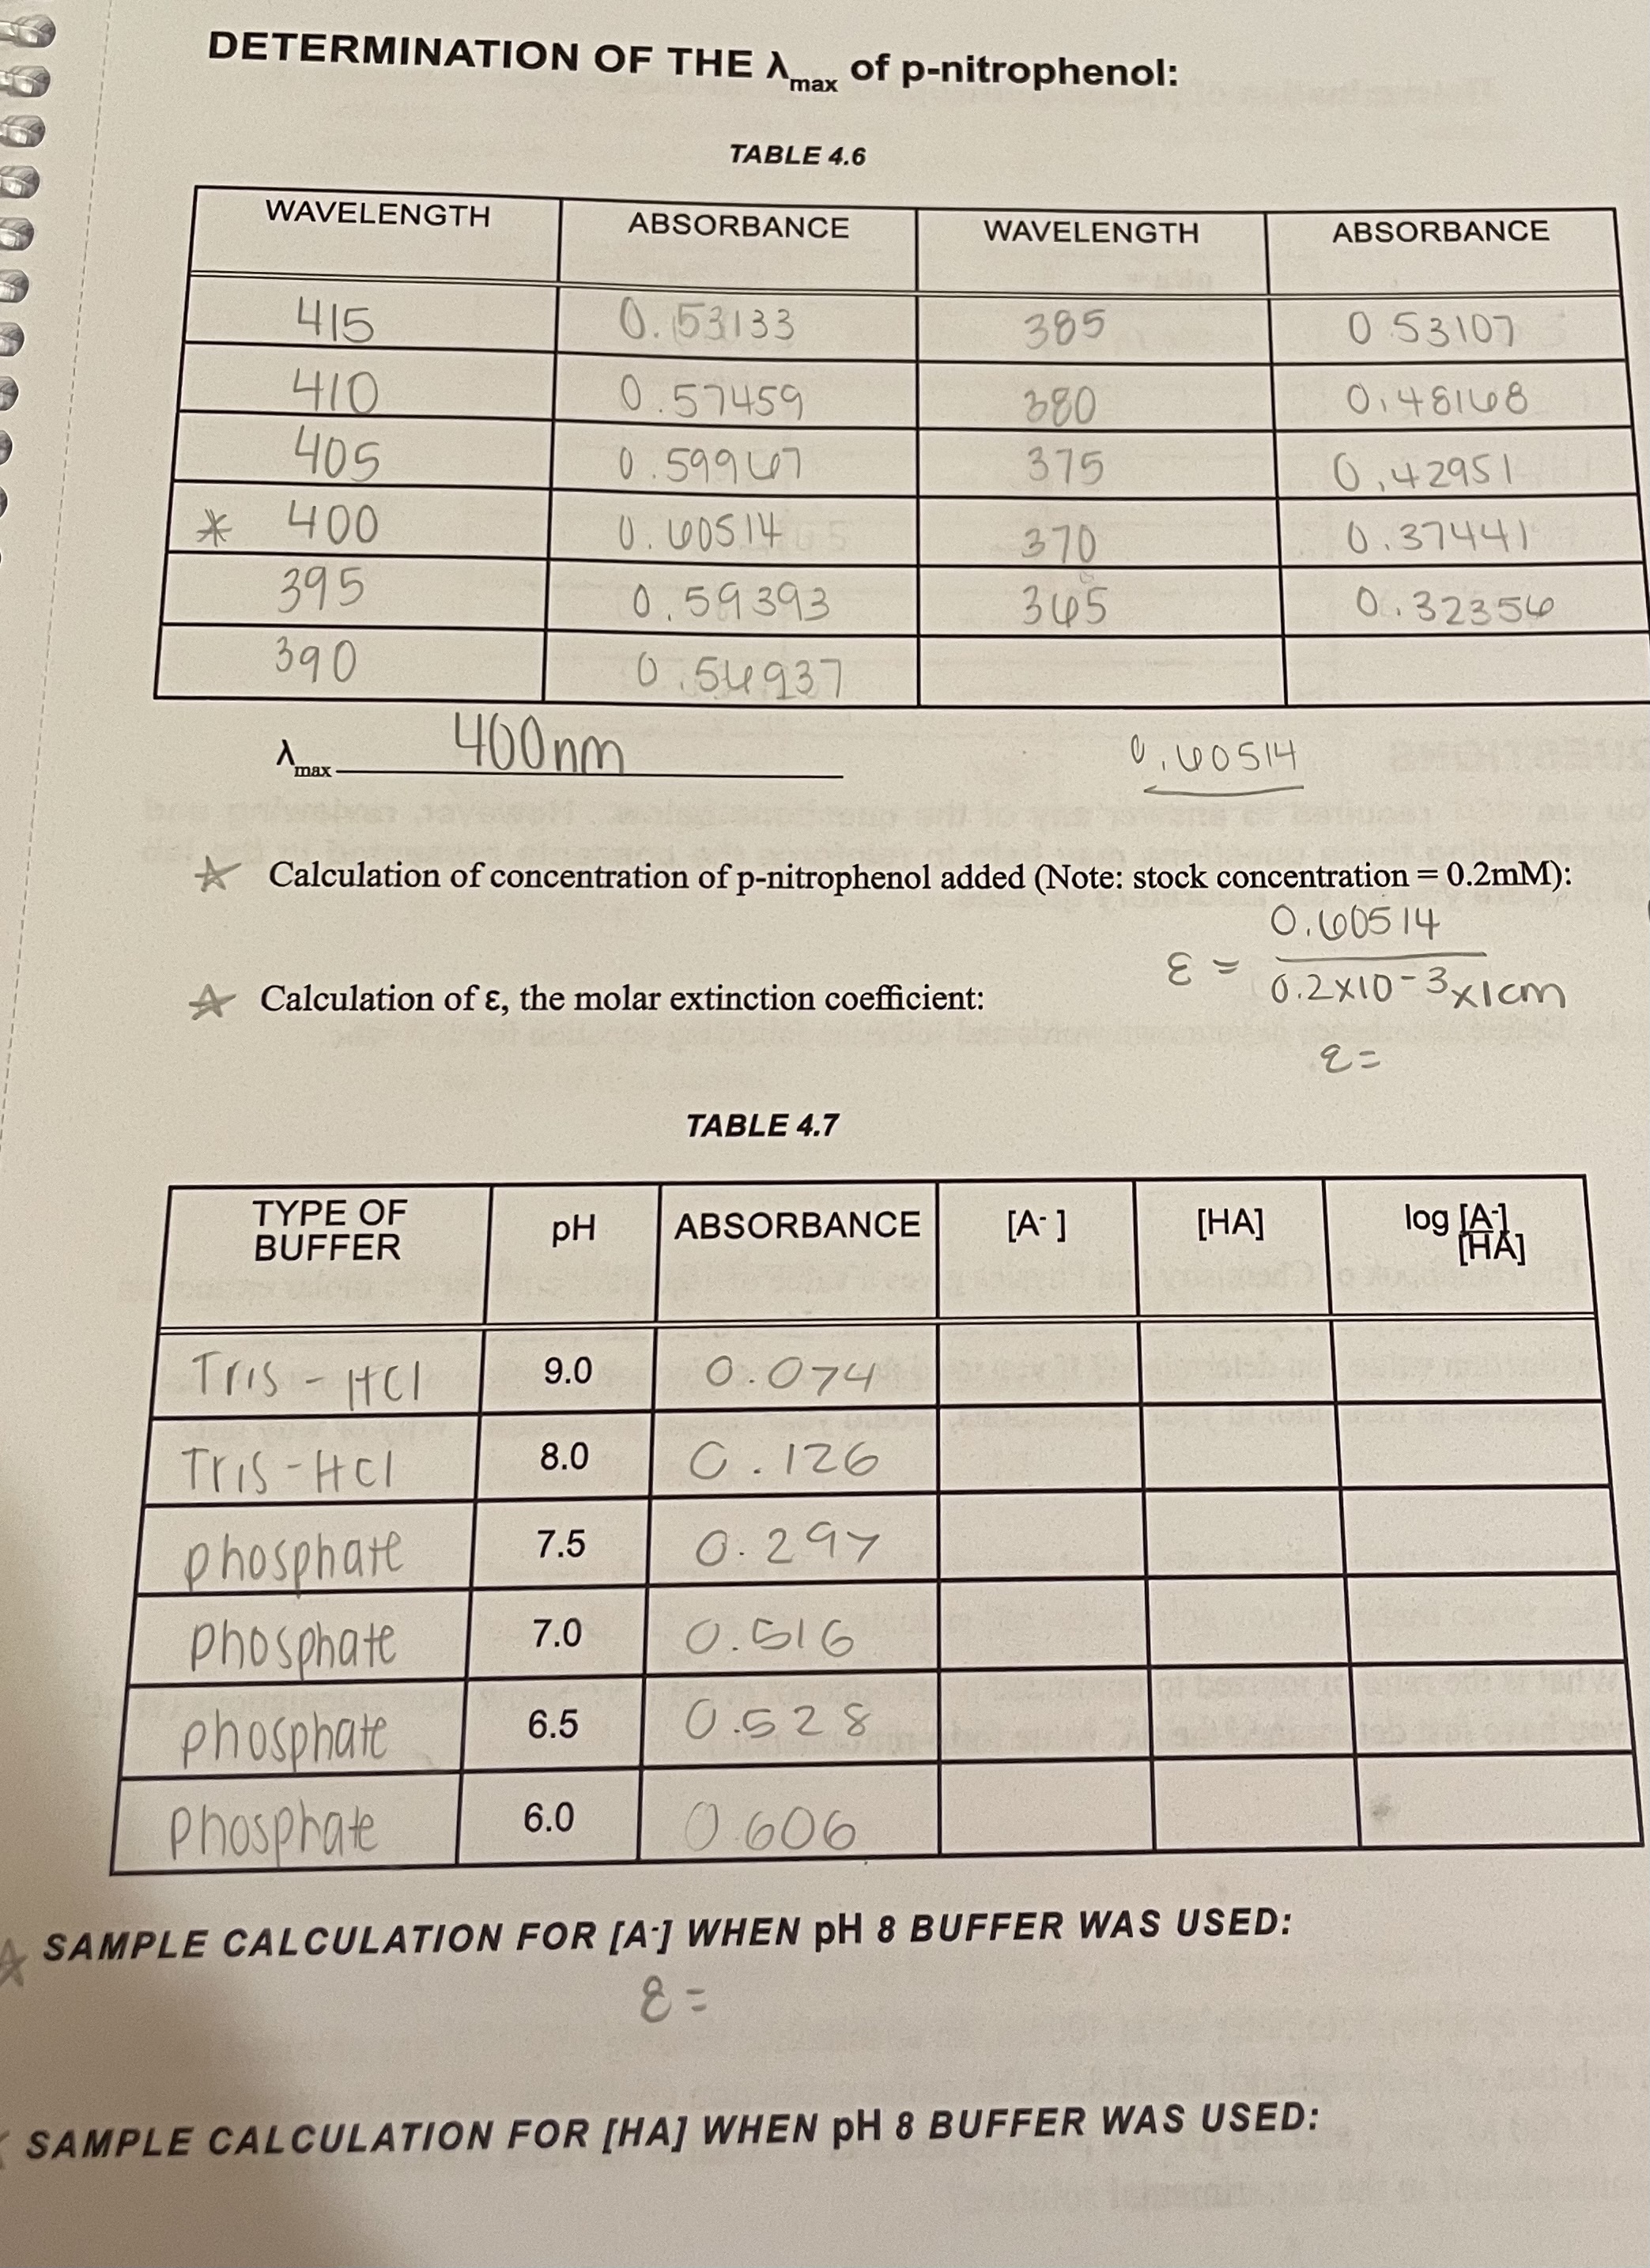 DETERMINATION OF THE λmax of p-nitrophenol:
TABLE 4.6
WAVELENGTH ABSORBANCE WAVELENGTH ABSORBANCE
415 0.53133 385 0.53107
410 0.57459 380 0.48168
405 0.59967 375 0.42951
* 400 0.60514 370 0.37441
395 0.59393 365 0.32356
390 0.56937
λmax 400nm 0.60514
☆ Calculation of concentration of p-nitrophenol added (Note: stock concentration = 0.2mM):
0.60514
ε =
0.2x10-3x1cm
☆ Calculation of ε, the molar extinction coefficient:
ε =
TABLE 4.7
TYPE OF BUFFER pH ABSORBANCE [A-] [HA] log [A-] [HA]
Tris-HCl 9.0 0.074
Tris-HCl 8.0 0.126
phosphate 7.5 0.297
phosphate 7.0 0.516
phosphate 6.5 0.528
phosphate 6.0 0.606
☆ SAMPLE CALCULATION FOR [A-] WHEN pH 8 BUFFER WAS USED:
ε =
SAMPLE CALCULATION FOR [HA] WHEN pH 8 BUFFER WAS USED: